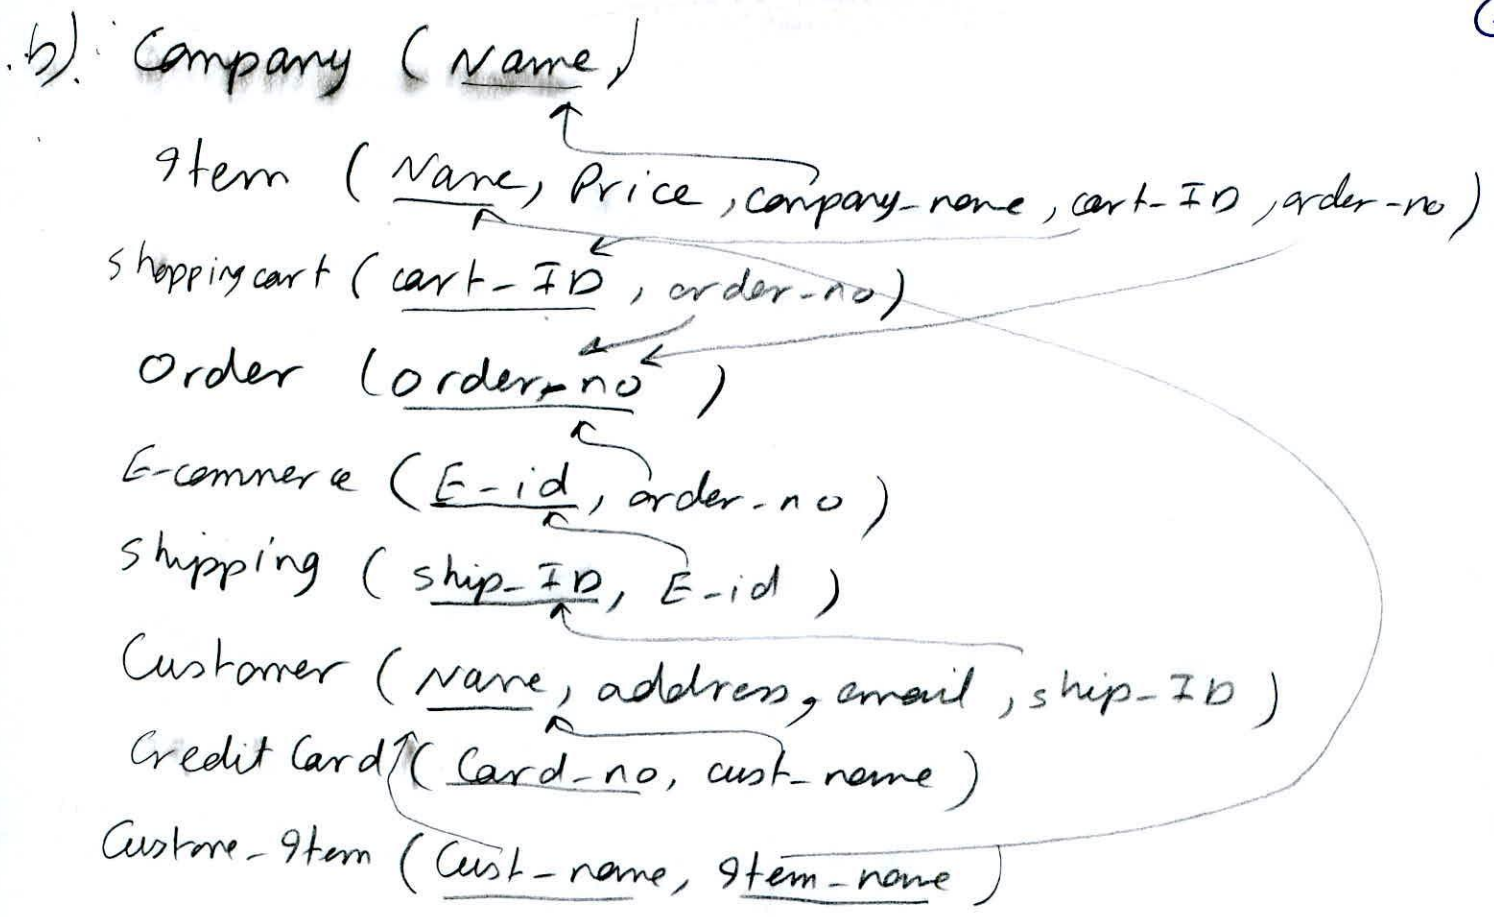 b) Company (Name)
Item (Name, Price, company_name, cart-ID, order-no)
shoppingcart (cart-ID, order-no)
Order (order-no)
E-commerce (E-id, order-no)
Shipping (ship-ID, E-id)
Customer (Name, address, email, ship-ID)
Credit Card (Card-no, cust-name)
Custome-Item (Cust-name, Item-name)